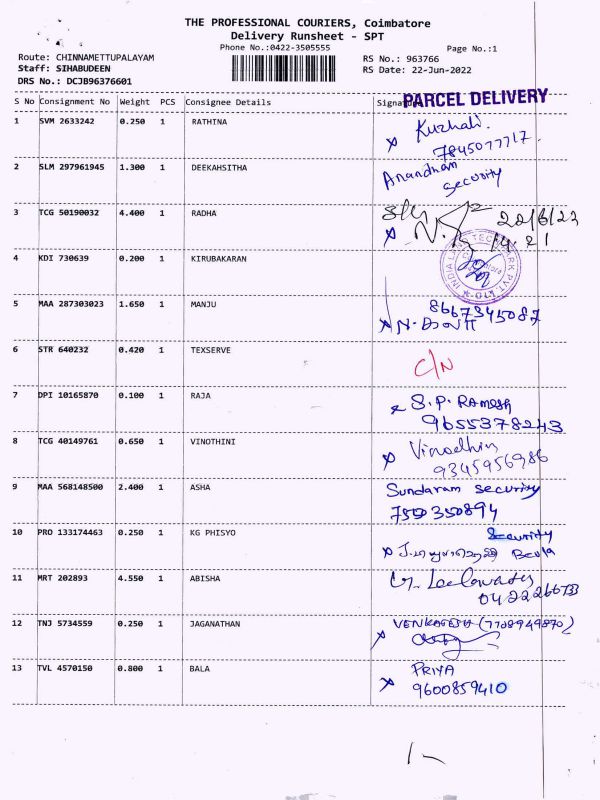 THE PROFESSIONAL COURIERS, Coimbatore
Delivery Runsheet - SPT
Phone No.:0422-3505555 Page No.:1
Route: CHINNAMETTUPALAYAM RS No.: 963766
Staff: SIHABUDEEN RS Date: 22-Jun-2022
DRS No.: DCJB96376601
PARCEL DELIVERY
S No Consignment No Weight PCS Consignee Details
1 SVM 2633242 0.250 1 RATHINA Kuzhali.
7845077717
2 SLM 297961945 1.300 1 DEEKAHSITHA Anandham
security
3 TCG 50190032 4.400 1 RADHA
4 KDI 730639 0.200 1 KIRUBAKARAN
5 MAA 287303023 1.650 1 MANJU 8667345087
6 STR 640232 0.420 1 TEXSERVE C/N
7 DPI 10165870 0.100 1 RAJA S.P. RAMESH
9655378243
8 TCG 40149761 0.650 1 VINOTHINI Vinodhin
9345956986
9 MAA 568148500 2.400 1 ASHA Sundaram security
7550350894
10 PRO 133174463 0.250 1 KG PHISYO Security
11 MRT 202893 4.550 1 ABISHA
12 TNJ 5734559 0.250 1 JAGANATHAN VENKATESH (7708949870)
13 TVL 4570150 0.800 1 BALA PRIYA
9600859410